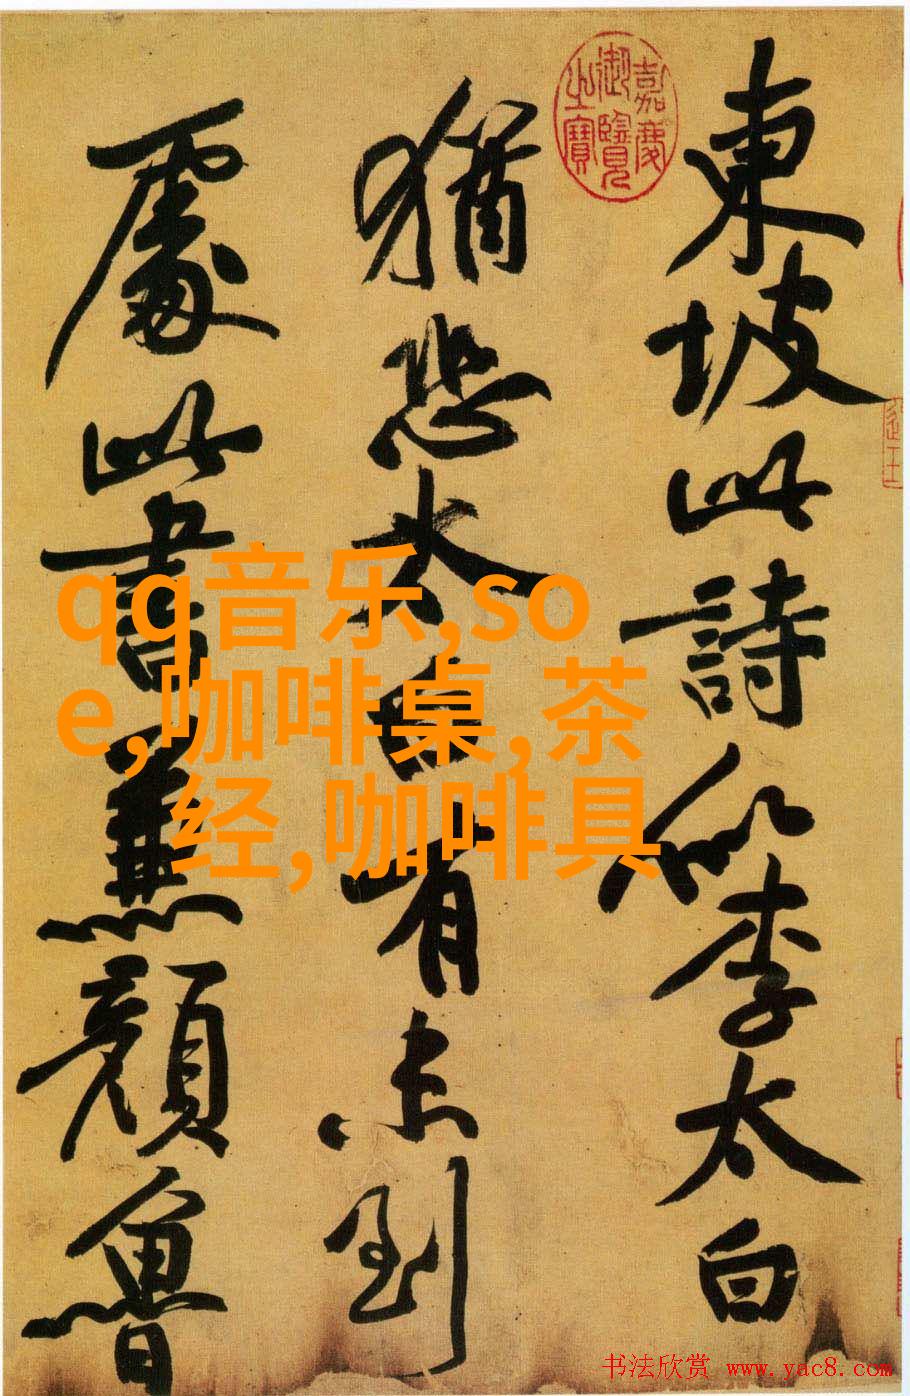 東坡此詩似李太白
猶恐太白有未到
處此書兼顔魯
嘉慶
御覽
之寶
qq音乐,so
e,咖啡桌,茶
经,咖啡具
书法欣赏 www.yac8.com